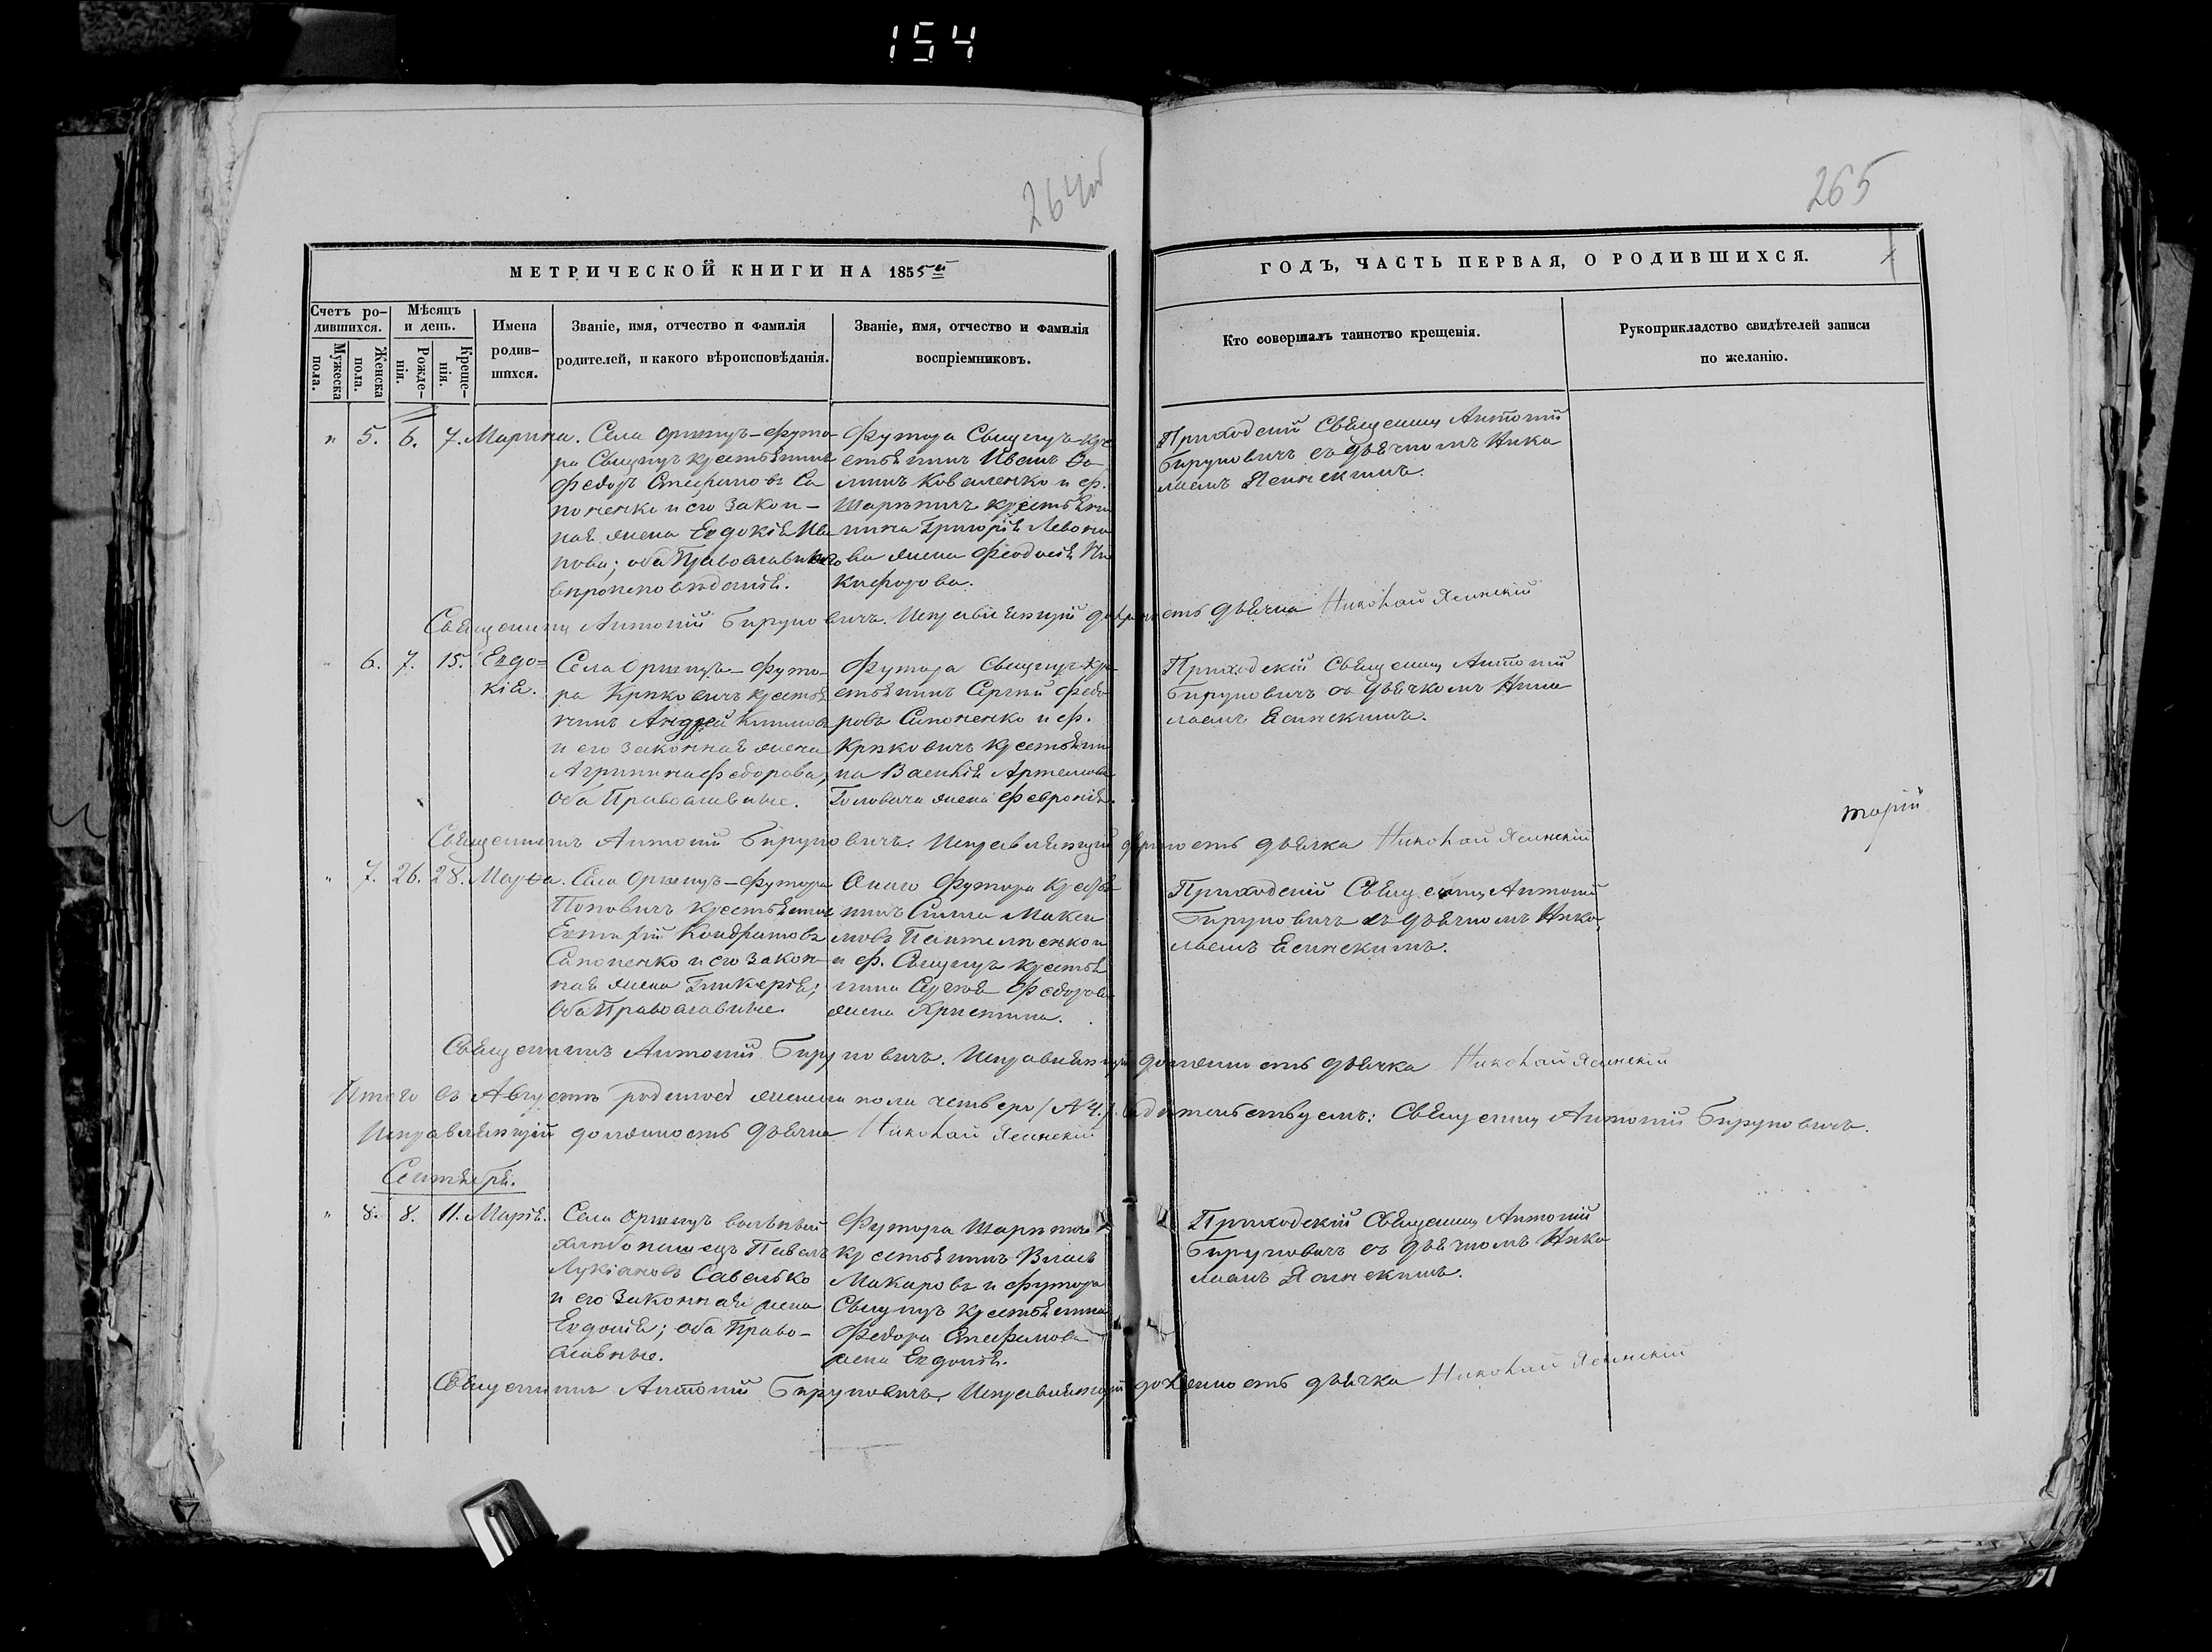 154
264об
265
МЕТРИЧЕСКОЙ КНИГИ НА 1855й
ГОДЪ, ЧАСТЬ ПЕРВАЯ, О РОДИВШИХСЯ.
Счетъ родившихся.
Мужеска пола.
Женска пола.
Мѣсяцъ и день.
Рожденія.
Крещенія.
Имена родившихся.
Званіе, имя, отчество и фамилія родителей, и какого вѣроисповѣданія.
Званіе, имя, отчество и фамилія воспріемниковъ.
Кто совершалъ таинство крещенія.
Рукоприкладство свидѣтелей записи по желанію.
" 5. 6. 7. Марина.
Села Оржицъ-Футо-
ра Свыцпуъ крестьянинъ
Федоръ Стефановъ Са
поненко и его закон-
ная жена Евдокія Ива
нова; оба Православнаго
вѣроисповѣданія.
Футора Свыцпуъ кре
стьянинъ Иванъ Фо
минъ Коваленко и ф.
крестьяни
нина Григорія Левона
ва жена Феодосія Ни
кифорова.
Приходскій Священникъ Антоній
Бируновичъ съ дьячкомъ Нико
лаемъ Ясинскимъ.
Священникъ Антоній Бируновичъ. Исправляющій должность дьячка Николай Ясинскій
" 6. 7. 15. Евдо=
кія.
Села Оржица-Футо-
ра Крѝковичъ крестья
нинъ Андрей Климовъ
и его законная жена
Агрипина Федорова;
Оба Православные.
Футора Свыцпуъ кре
стьянинъ Сергѣй Федо
ровъ Сапоненко и ф.
крестьяни
на Василія Артемова
Головача жена Февронія.
Приходскій Священникъ Антоній
Бируновичъ съ дьячкомъ Нико
лаемъ Ясинскимъ.
Священникъ Антоній Бируновичъ. Исправляющій должность дьячка Николай Ясинскій
тарій
" 7. 26. 28. Марѳа.
Села Оржицъ-Футора
Поповичъ крестьянинъ
Евтафій Кондратовъ
Сапоненко и его закон-
ная жена Гликерія;
Оба Православные.
Онаго Футора крестья
нинъ Симa Макси
мовъ Пантелѣенко и
и ф. Свыцпуъ крестья
нина Сергѣя Федорова
жена Христина.
Приходскій Священникъ Антоній
Бируновичъ съ дьячкомъ Нико
лаемъ Ясинскимъ.
Священникъ Антоній Бируновичъ. Исправляющій должность дьячка Николай Ясинскій
Итого въ Августѣ родилось женска пола четверо /№4./ Свидѣтельствуемъ: Священникъ Антоній Бируновичъ.
Исправляющій должность дьячка Николай Ясинскій
Сентября.
" 8. 8. 11. Марія.
Села Оржицъ вольный
хлѣбопашецъ Павелъ
Лукіановъ Савелько
и его законная жена
Евдокія; оба Право-
славные.
Футора
крестьянинъ Власъ
Макаровъ и футора
Свыцпуъ крестьянина
Федора Стефанова
жена Евдокія.
Приходскій Священникъ Антоній
Бируновичъ съ дьячкомъ Нико
лаемъ Ясинскимъ.
Священникъ Антоній Бируновичъ. Исправляющій должность дьячка Николай Ясинскій